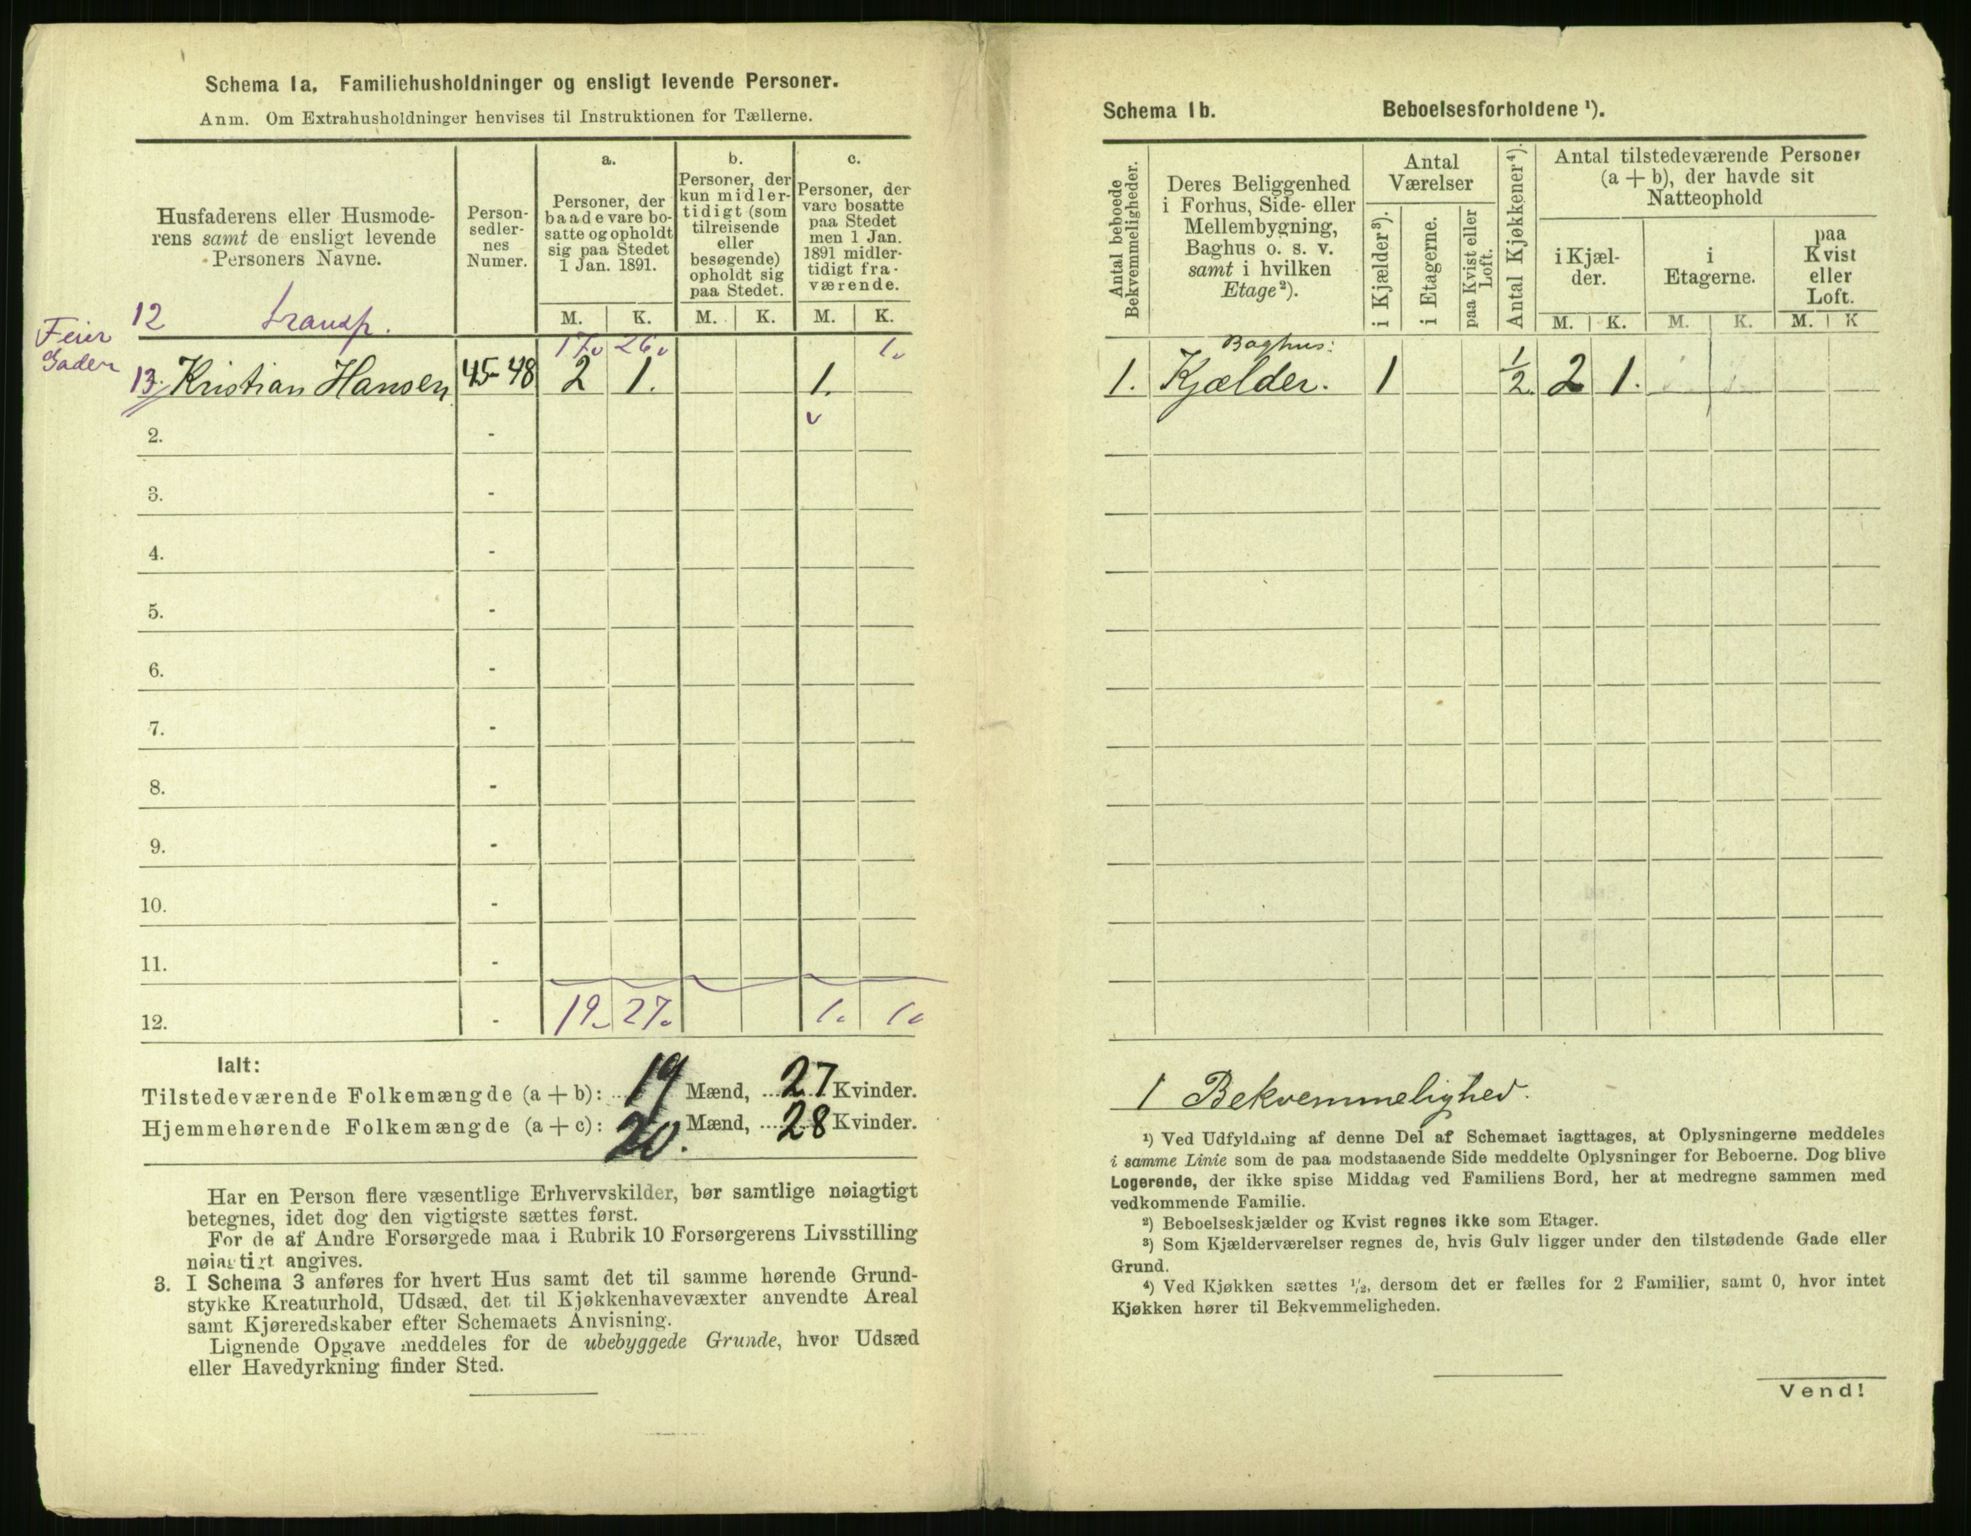 Schema 1a. Familiehusholdninger og ensligt levende Personer.
Anm. Om Extrahusholdninger henvises til Instruktionen for Tællerne.
Husfaderens eller Husmode-
rens samt de ensligt levende
Personers Navne.
Person-
sedler-
nes
Numer.
a.
Personer, der
baade vare bo-
satte og opholdt
sig paa Stedet
1 Jan. 1891.
b.
Personer, der
kun midler-
tidigt (som
tilreisende
eller
besøgende)
opholdt sig
paa Stedet.
c.
Personer, der
vare bosatte
paa Stedet
men 1 Jan.
1891 midler-
tidigt fra-
værende.
M. K. M. K. M. K.
12 transp. 17. 26. 1.
Feier
Gaden
13. Kristian Hansen 45-48 2 1. 1.
2. -
3. -
4. -
5. -
6. -
7. -
8. -
9. -
10. -
11. -
12. - 19. 27. 1. 1.
Ialt:
Tilstedeværende Folkemængde (a + b): 19 Mænd, 27 Kvinder.
Hjemmehørende Folkemængde (a + c): 20. Mænd, 28 Kvinder.
Har en Person flere væsentlige Erhvervskilder, bør samtlige nøiagtigt
betegnes, idet dog den vigtigste sættes først.
For de af Andre Forsørgede maa i Rubrik 10 Forsørgerens Livsstilling
nøiagtigt angives.
3. I Schema 3 anføres for hvert Hus samt det til samme hørende Grund-
stykke Kreaturhold, Udsæd, det til Kjøkkenhavevæxter anvendte Areal
samt Kjøreredskaber efter Schemaets Anvisning.
Lignende Opgave meddeles for de ubebyggede Grunde, hvor Udsæd
eller Havedyrkning finder Sted.
Schema 1b. Beboelsesforholdene ¹).
Antal beboede
Bekvemmeligheder.
Deres Beliggenhed
i Forhus, Side- eller
Mellembygning,
Baghus o. s. v.
samt i hvilken
Etage²).
Antal
Værelser
i Kjælder³).
i Etagerne.
paa Kvist eller
Loft.
Antal Kjøkkener⁴).
Antal tilstedeværende Personer
(a + b), der havde sit
Natteophold
i Kjæl-
der.
i
Etagerne.
paa
Kvist
eller
Loft.
M. K. M. K. M. K
Baghus:
1. Kjælder. 1 1/2. 2 1.
1 Bekvemmelighed.
¹) Ved Udfyldning af denne Del af Schemaet iagttages, at Oplysningerne meddeles
i samme Linie som de paa modstaaende Side meddelte Oplysninger for Beboerne. Dog blive
Logerende, der ikke spise Middag ved Familiens Bord, her at medregne sammen med
vedkommende Familie.
²) Beboelseskjælder og Kvist regnes ikke som Etager.
³) Som Kjælderværelser regnes de, hvis Gulv ligger under den tilstødende Gade eller
Grund.
⁴) Ved Kjøkken sættes ¹/₂, dersom det er fælles for 2 Familier, samt 0, hvor intet
Kjøkken hører til Bekvemmeligheden.
Vend!